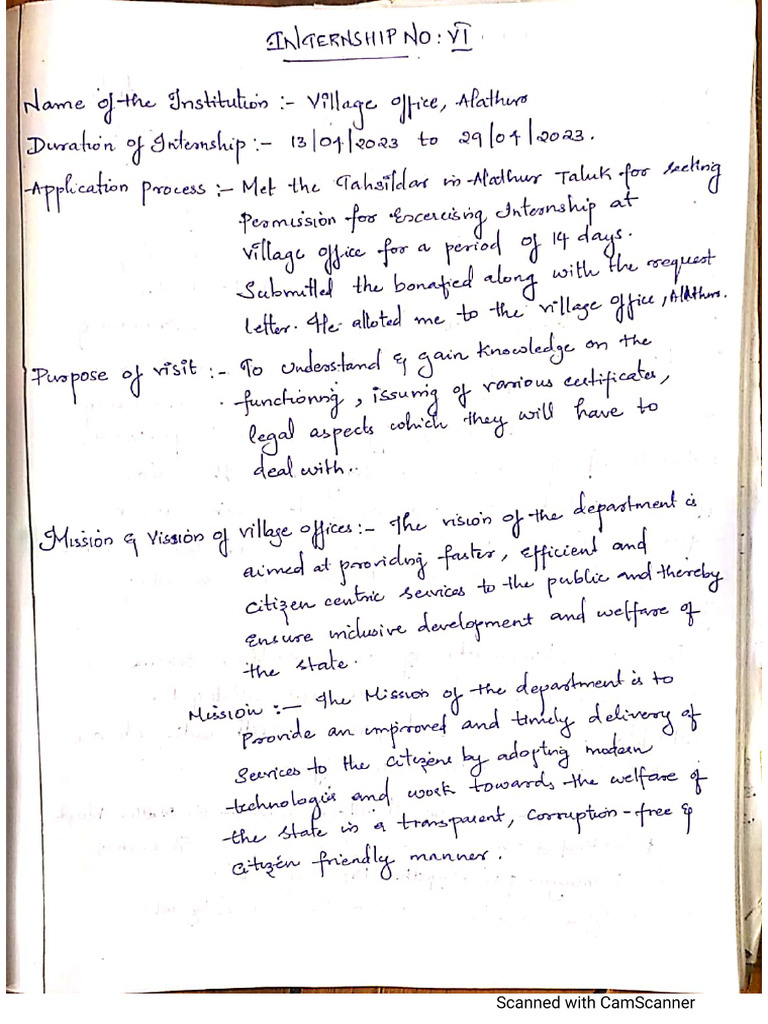 INTERNSHIP NO: VI
Name of the Institution :- Village office, Alathur
Duration of Internship :- 13/04/2023 to 29/04/2023.
Application process :- Met the Tahsildar in Alathur Taluk for seeking
Permission for Excercising Internship at
village office for a period of 14 days.
Submitted the bonafied along with the request
letter. He alloted me to the village office, Alathur.
Purpose of visit :- To understand & gain knowledge on the
functioning, issuing of various certificates,
legal aspects which they will have to
deal with..
Mission & Vission of village offices :- The vision of the department is
aimed at providing faster, efficient and
citizen centric services to the public and thereby
ensure inclusive development and welfare of
the state.
Mission :- The Mission of the department is to
Provide an improved and timely delivery of
Services to the citizens by adopting modern
technologies and work towards the welfare of
the state in a transparent, corruption-free &
citizen friendly manner.
Scanned with CamScanner